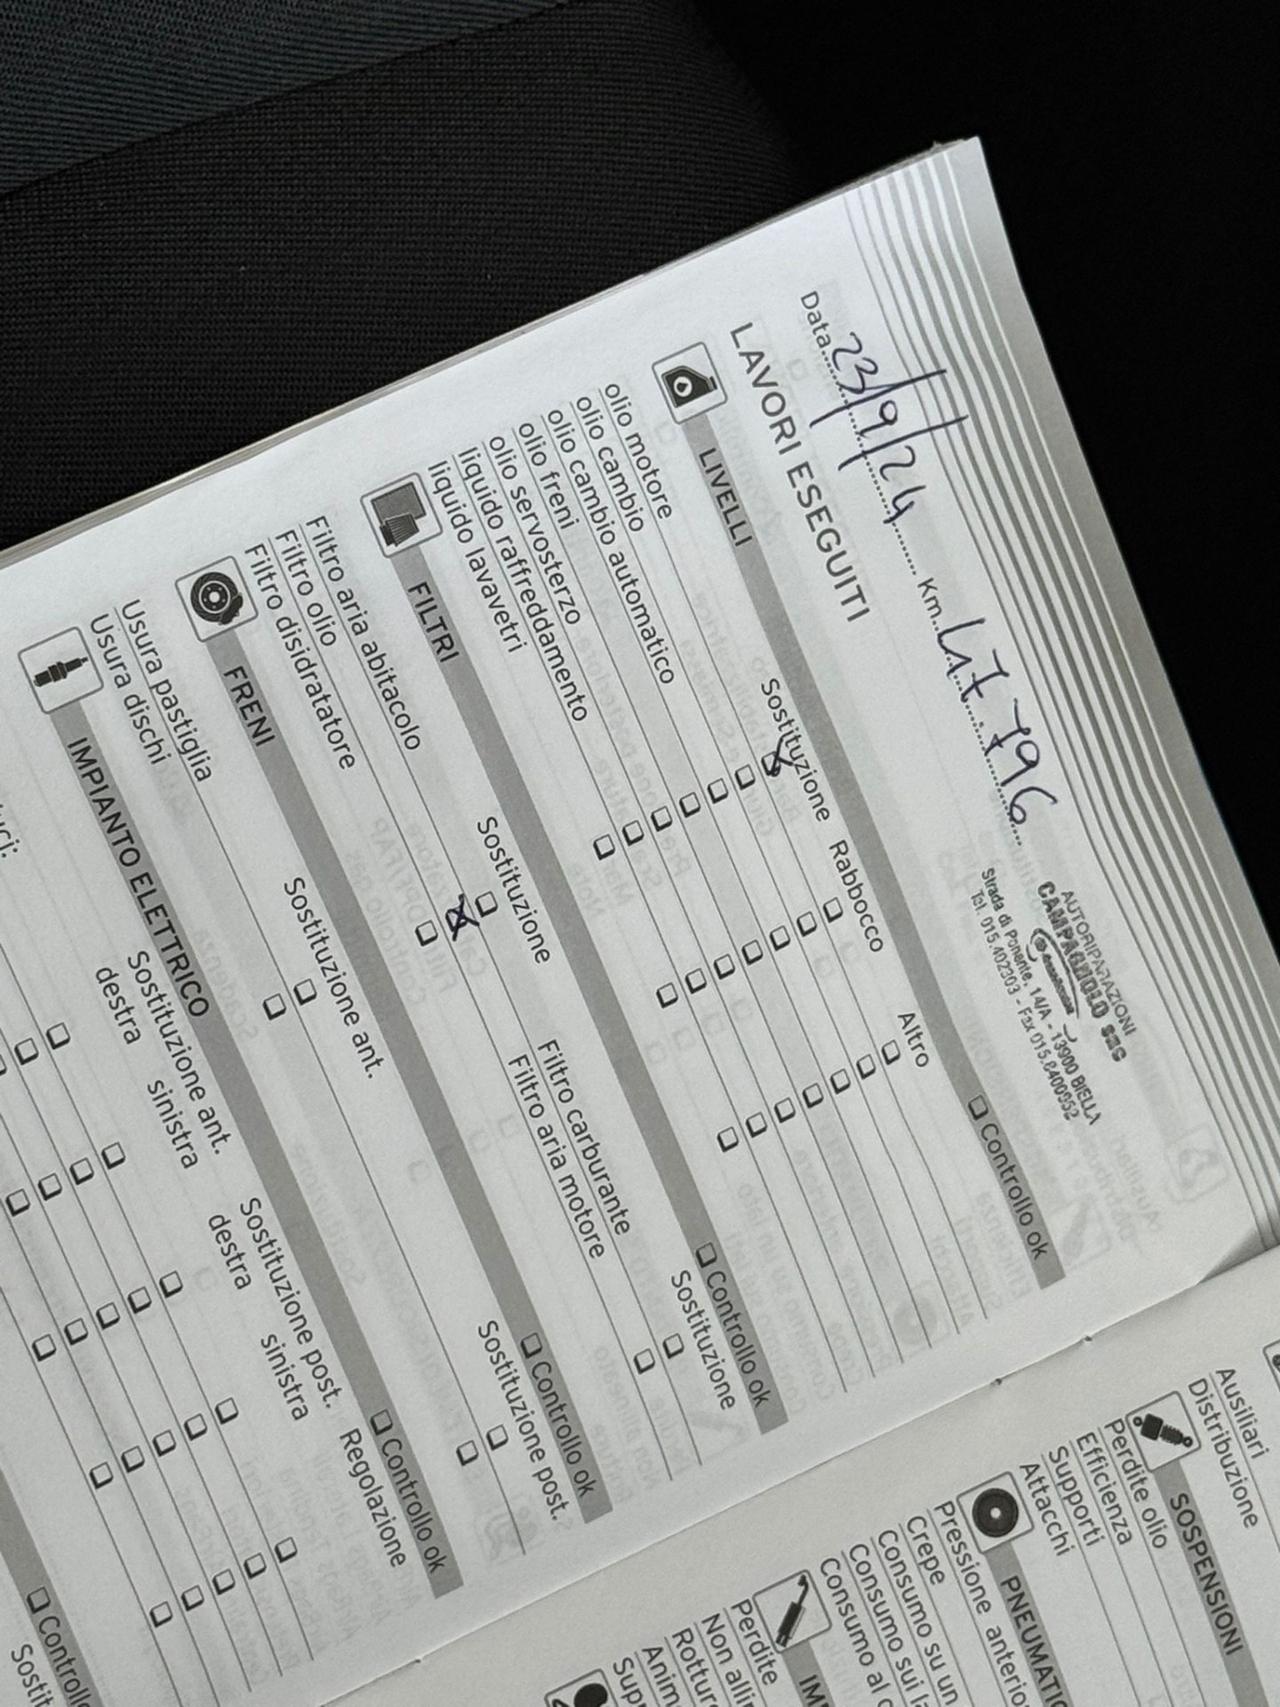 Data 23/9/24 Km. 47.796
AUTORIPARAZIONI
CAMPAGNOLO sas
Strada di Ponente, 14/A - 13900 BIELLA
Tel. 015.402303 - Fax 015.8400952
LAVORI ESEGUITI
LIVELLI
Controllo ok
Sostituzione Rabbocco Altro
olio motore
olio cambio
olio cambio automatico
olio freni
olio servosterzo
liquido raffreddamento
liquido lavavetri
FILTRI
Controllo ok
Sostituzione Sostituzione
Filtro aria abitacolo Filtro carburante
Filtro olio Filtro aria motore
Filtro disidratatore
FRENI
Controllo ok
Sostituzione ant. Sostituzione post.
Usura pastiglia
Usura dischi
IMPIANTO ELETTRICO
Controllo ok
Sostituzione ant. Sostituzione post. Regolazione
destra sinistra destra sinistra
Controllo
Ausiliari
Distribuzione
SOSPENSIONI
Perdite olio
Efficienza
Supporti
Attacchi
Pressione anterio
Crepe
Consumo su un
Consumo sui
Consumo al
Perdite
Non alli
Rotture